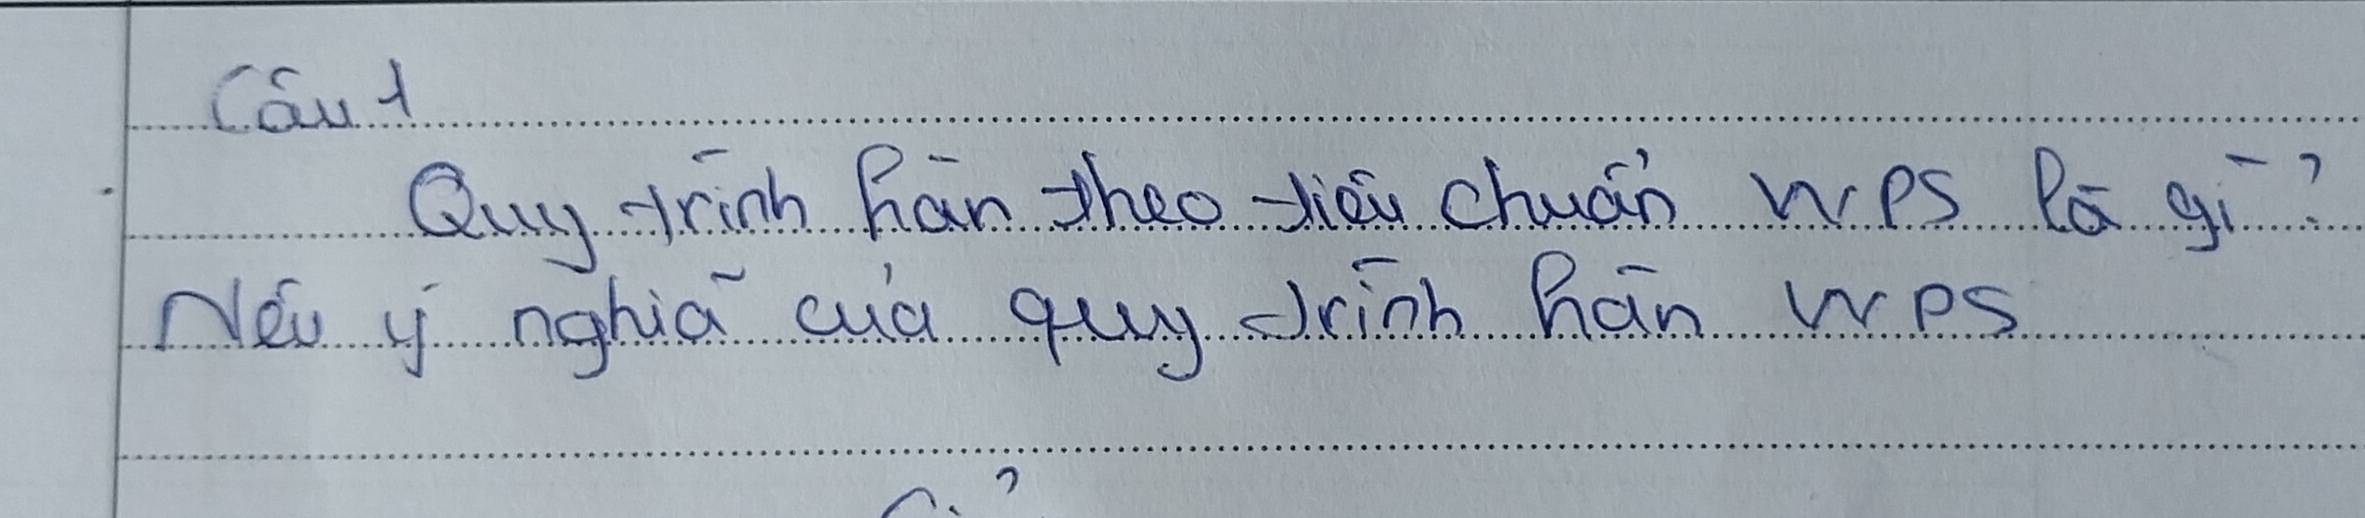 Câu 1
Quy trình hàn theo tiêu chuẩn WPS là gì?
Nêu ý nghĩa của quy trình hàn WPS